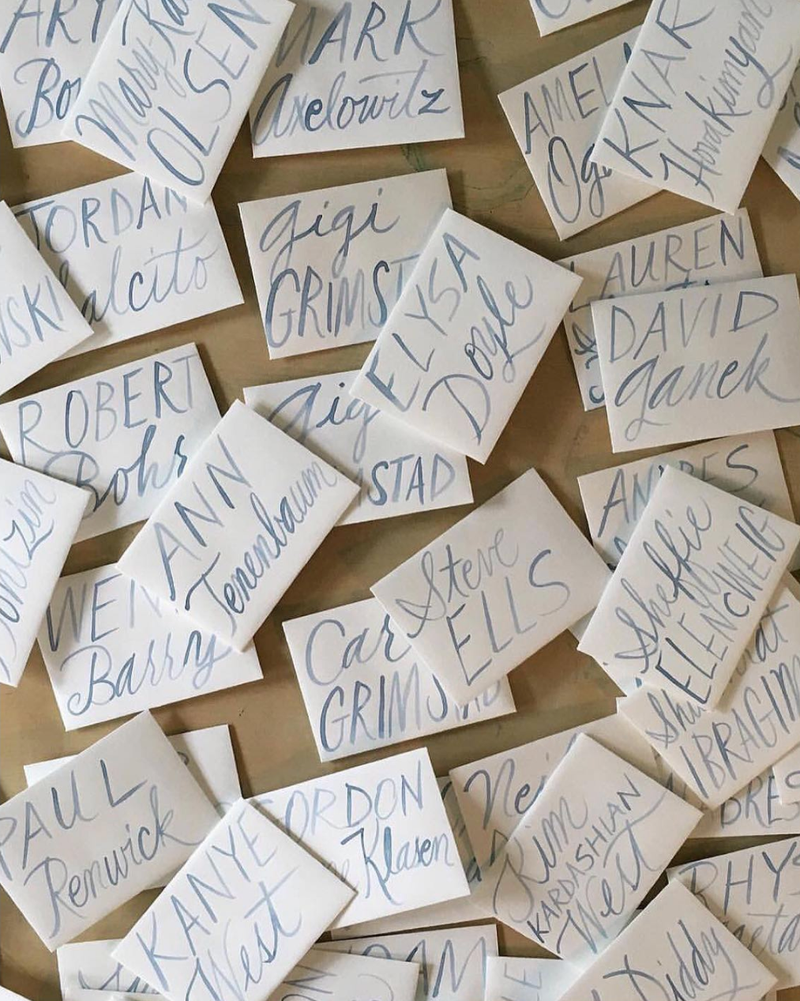 ARY
Mary-Ka
OLSEN
MARK
Axelowitz
AMEL
KNAR
Hovakimyan
JORDAN
alcito
NSKI
Gigi
GRIMST
ELYSA
Doyle
LAUREN
DAVID
Ganek
ROBERT
Bohr
Gig
STAD
ANN
Tenenbaum
Steve
ELLS
Sheffie
ELENCWEIG
WEN
Barry
Car
GRIMSTAD
IBRAGIM
PAUL
Renwick
KANYE
West
ORDON
Klasen
Nei
Kim
KARDASHIAN
West
BRES
RHYS
Diddy